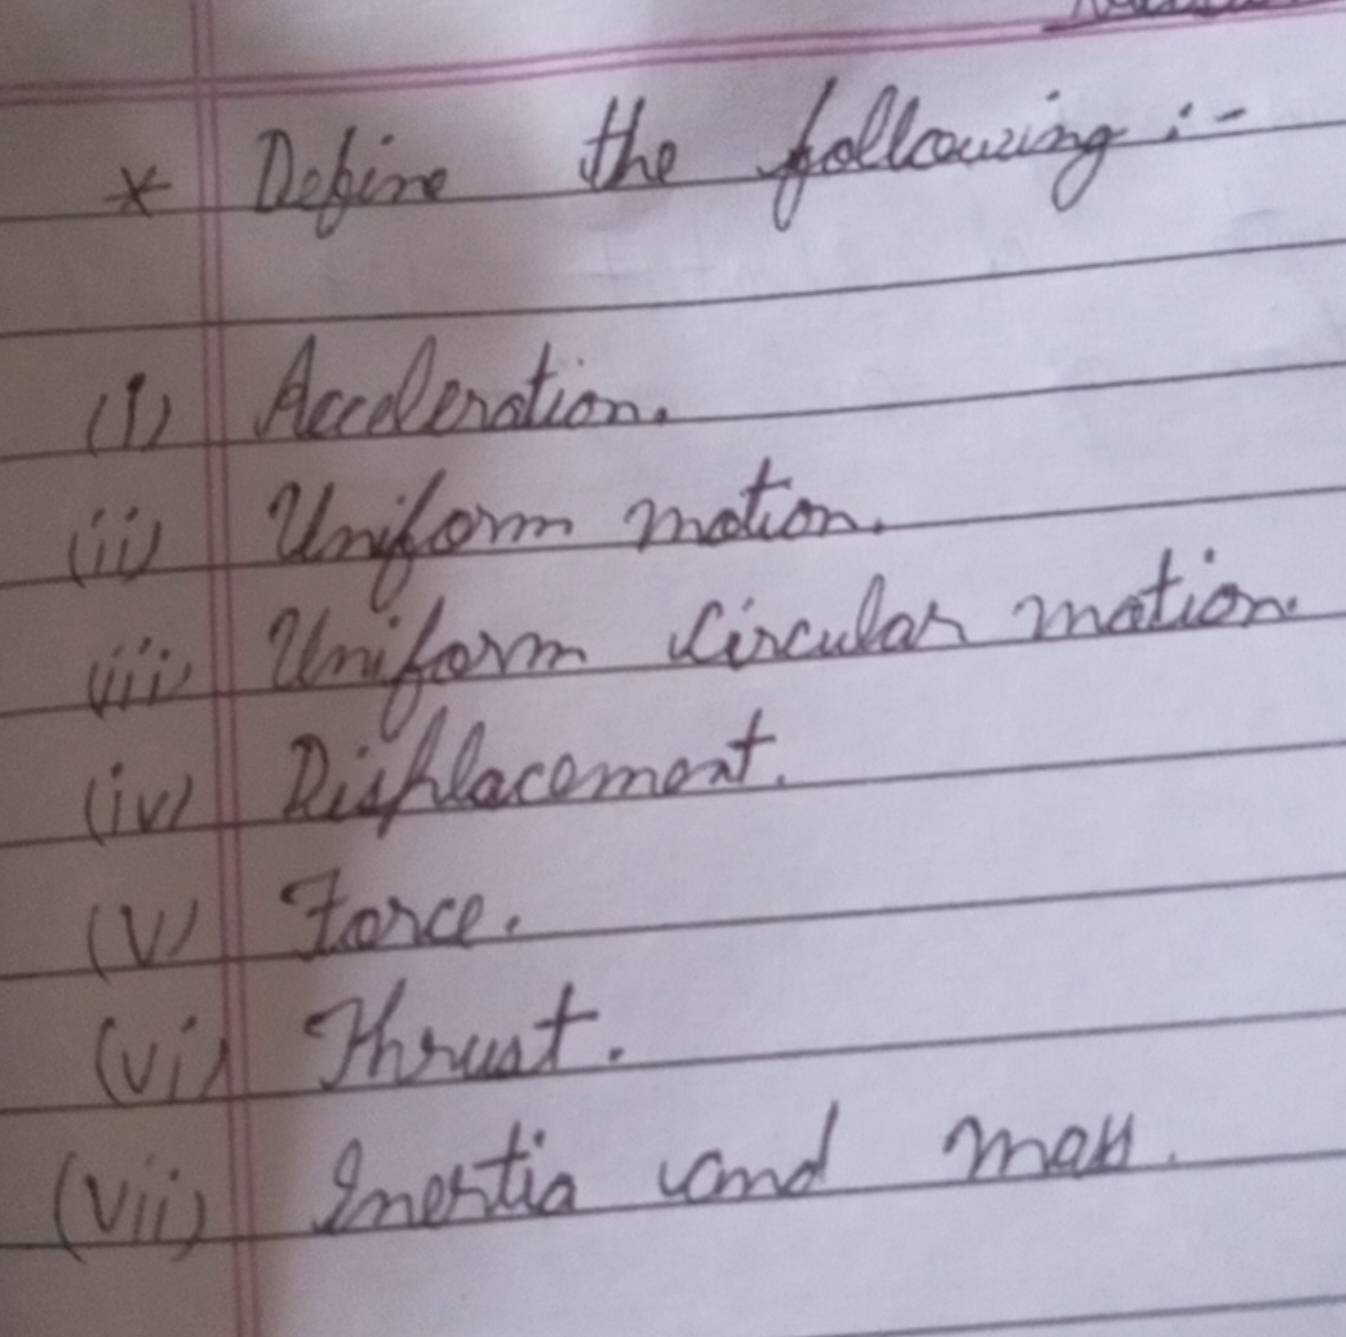 * Define the following :-
(i) Acceleration.
(ii) Uniform motion.
(iii) Uniform circular motion.
(iv) Displacement.
(v) Force.
(vi) Thrust.
(vii) Inertia and mass.